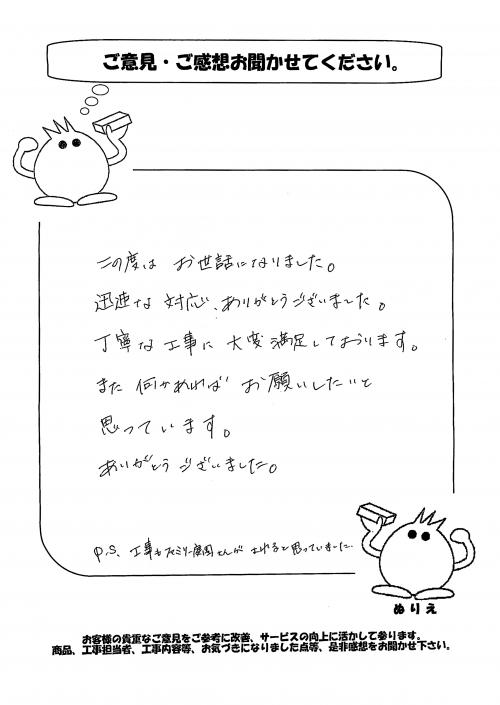 ご意見・ご感想お聞かせてください。
この度は お世話になりました。
迅速な 対応、ありがとうございました。
丁寧な工事に 大変満足しております。
また 何かあれば お願いしたいと
思っています。
ありがとうございました。
P.S. 工事もファミリー庭園さんが と思っていました
ぬりえ
お客様の貴重なご意見をご参考に改善、サービスの向上に活かして参ります。
商品、工事担当者、工事内容等、お気づきになりました点等、是非感想をお聞かせ下さい。